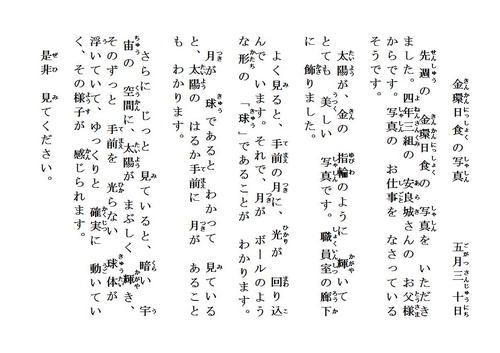 金環日食の写真　　五月三十日
先週の　金環日食の　写真を　いただき
ました。四年三組の　安良城さんの　お父様
からです。写真の　お仕事を　なさっている
そうです。
太陽が、金の　指輪のように　輝いて
とても　美しい　写真です。職員室の廊下
に　飾りました。
よく見ると、手前の月に、光が　回り込
んで　います。それで、月が　ボールのよう
な形の　「球」であることが　わかります。
月が　球であると　わかって　見ている
と、太陽の　はるか手前に　月が　あること
も　わかります。
さらに　じっと　見ていると、暗い　宇
宙の　空間に、太陽が　まぶしく　輝き、
そのずっと　手前を　光らない　球体が
浮いていて、ゆっくりと　確実に　動いてい
く、その様子が　感じられます。
是非　見てください。